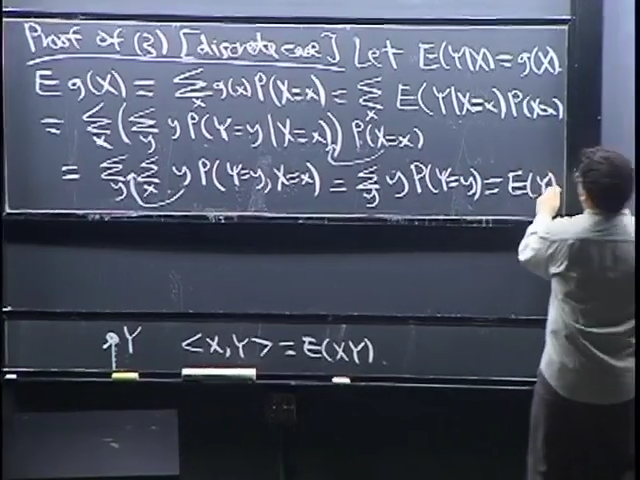 Proof of (3) [discrete case] Let E(Y|X) = g(X).
E g(X) = Σ_x g(x) P(X=x) = Σ_x E(Y|X=x) P(X=x)
= Σ_x (Σ_y y P(Y=y|X=x)) P(X=x)
= Σ_y Σ_x y P(Y=y, X=x) = Σ_y y P(Y=y) = E(Y)
Y <X,Y> = E(XY).